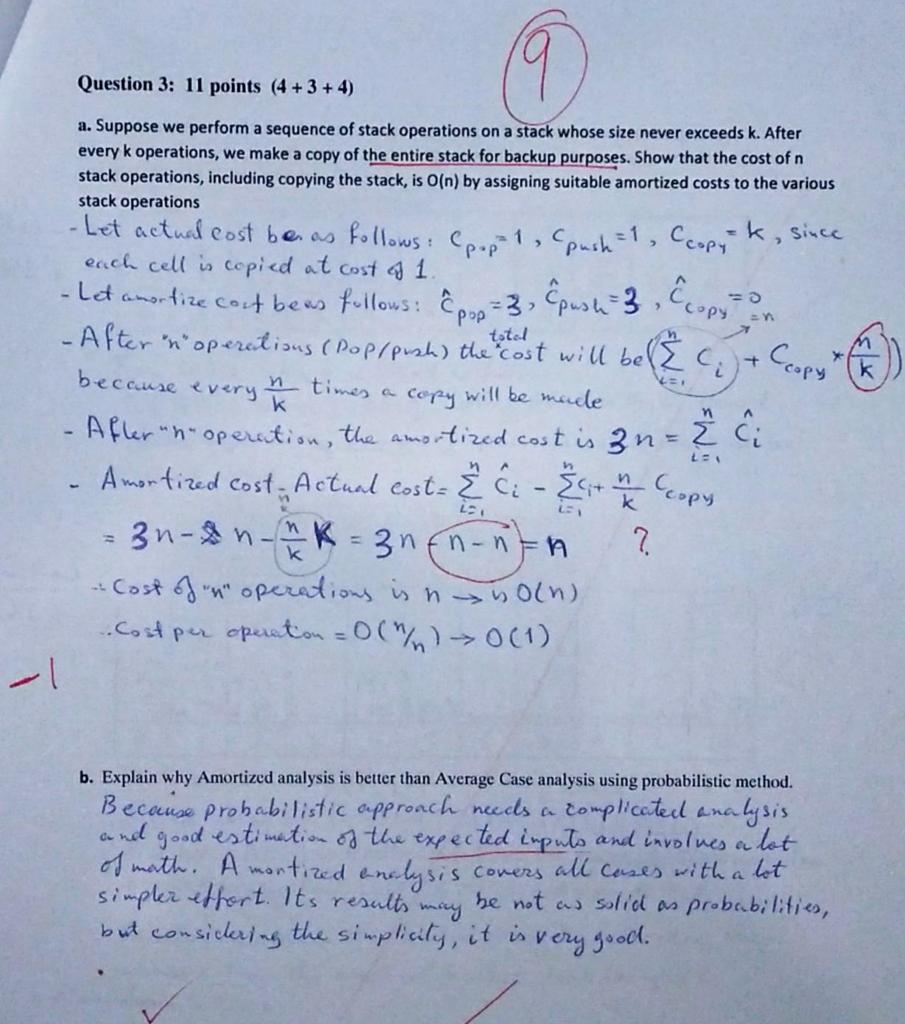 9
Question 3: 11 points (4 + 3 + 4)
a. Suppose we perform a sequence of stack operations on a stack whose size never exceeds k. After
every k operations, we make a copy of the entire stack for backup purposes. Show that the cost of n
stack operations, including copying the stack, is O(n) by assigning suitable amortized costs to the various
stack operations
- Let actual cost be as follows: C_pop = 1, C_push = 1, C_copy = k, since
each cell is copied at cost of 1.
- Let amortize cost be as follows: Ĉ_pop = 3, Ĉ_push = 3, Ĉ_copy = 0
= n
- After "n" operations (Pop/push) the total cost will be (Σ_{i=1}^{n} C_i + C_copy * n/k)
because every n/k times a copy will be made
- After "n" operation, the amortized cost is 3n = Σ_{i=1}^{n} Ĉ_i
- Amortized cost - Actual cost = Σ_{i=1}^{n} Ĉ_i - Σ_{i=1}^{n} C_i + n/k C_copy
= 3n - n - n/k K = 3n - n - n = n ?
∴ Cost of "n" operations is n → is O(n)
∴ Cost per operation = O(n/n) → O(1)
-1
b. Explain why Amortized analysis is better than Average Case analysis using probabilistic method.
Because probabilistic approach needs a complicated analysis
and good estimation of the expected inputs and involves a lot
of math. Amortized analysis covers all cases with a lot
simpler effort. Its results may be not as solid as probabilities,
but considering the simplicity, it is very good.